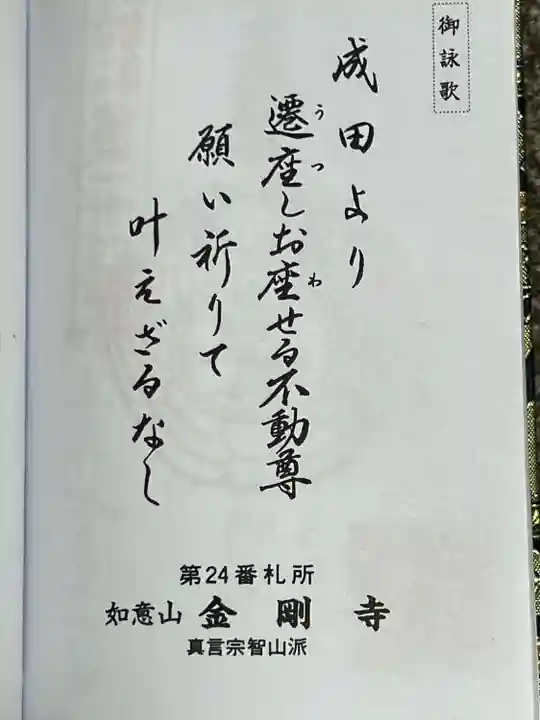 御詠歌
成田より
遷座しお座せる不動尊
うつ
わ
願い祈りて
叶えざるなし
第24番札所
如意山 金剛寺
真言宗智山派